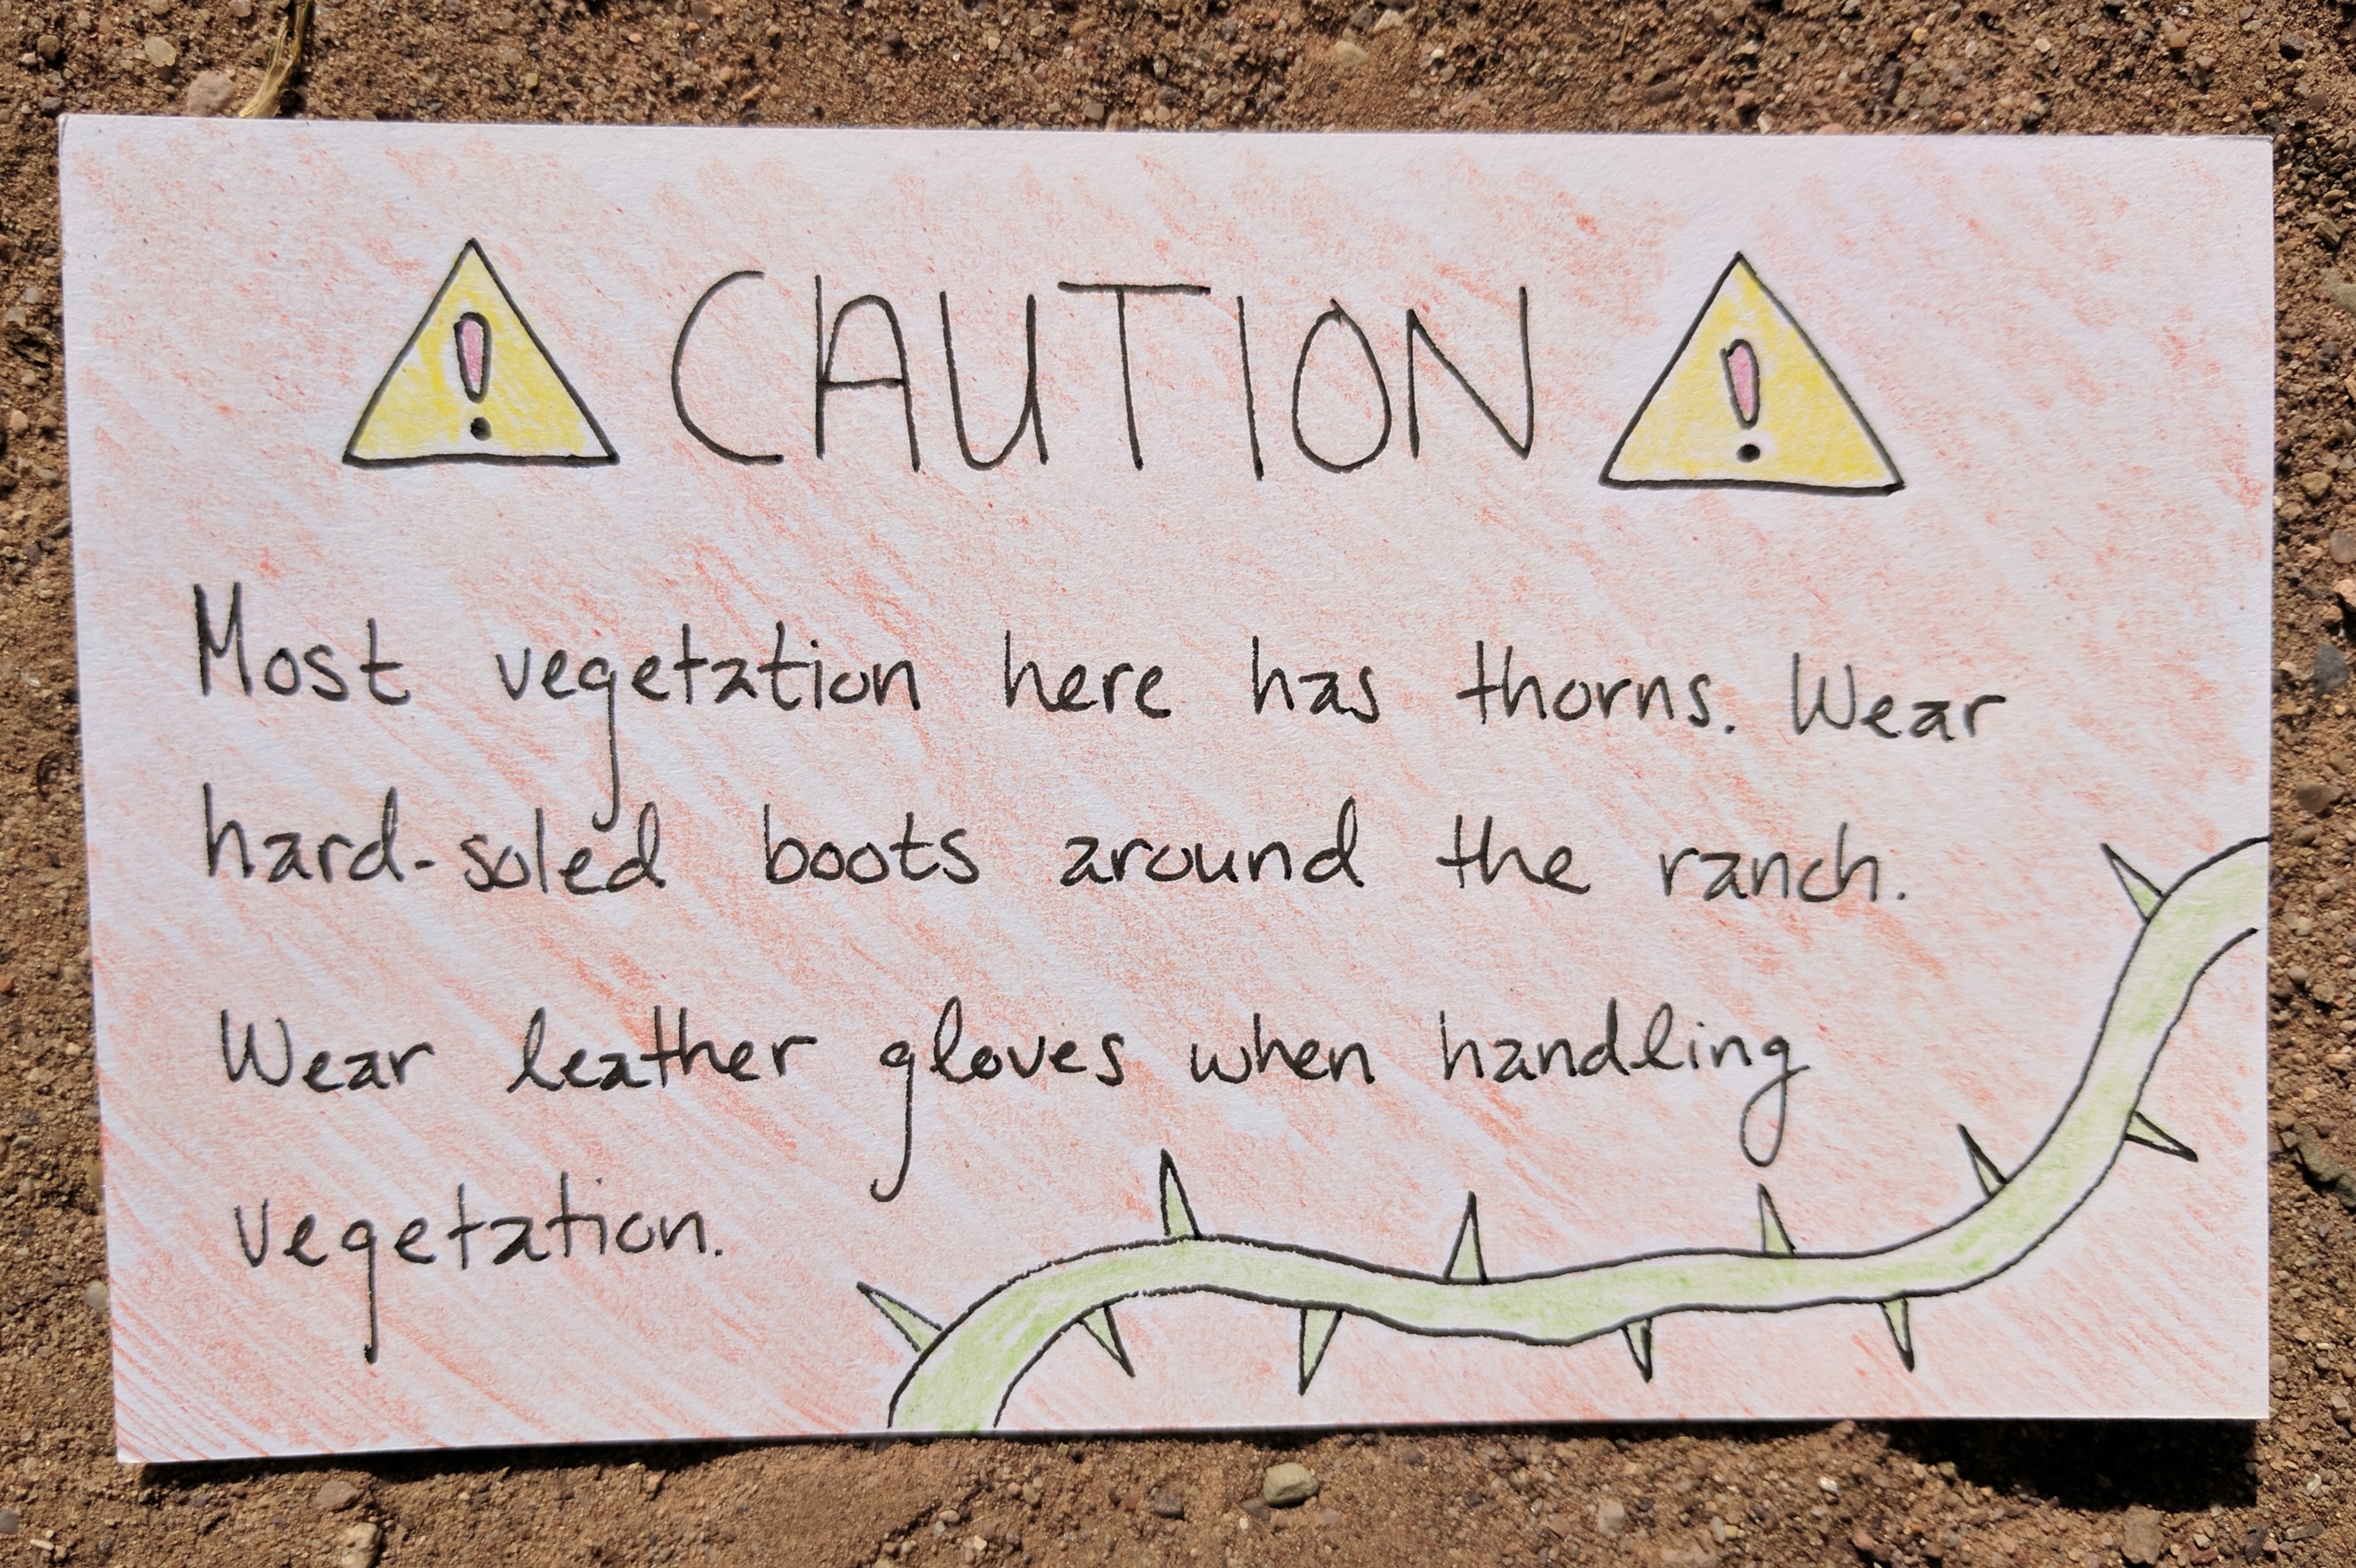 CAUTION
Most vegetation here has thorns. Wear
hard-soled boots around the ranch.
Wear leather gloves when handling
vegetation.